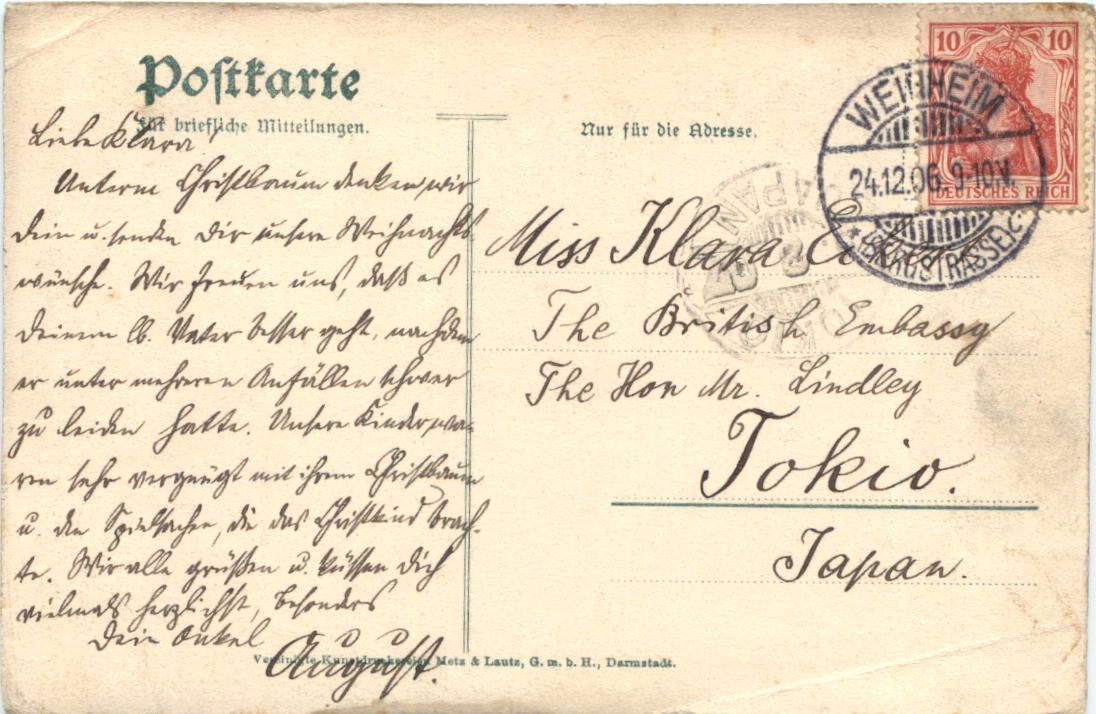 Postkarte
Für briefliche Mitteilungen.
Nur für die Adresse.
10 10
DEUTSCHES REICH
WEINHEIM
24.12.06. 9-10V.
* (BERGSTRASSE) c
JAPAN
Liebe Klara!
Unterm Christbaum denken wir
Dein u. senden Dir unsere Weihnachts-
wünsche. Wir freuen uns, daß es
Deinem lb. Vater besser geht, nachdem
er unter mehreren Anfällen schwer
zu leiden hatte. Unsere Kinder wa-
ren sehr vergnügt mit ihrem Christbaum
u. den Spielsachen, die das Christkind brach-
te. Wir alle grüßen u. küssen Dich
vielmals herzlichst, besonders
Dein Onkel
August.
Miss Klara
The British Embassy
The Hon Mr. Lindley
Tokio.
Japan.
Vereinigte Kunstdruckereien Metz & Lautz, G. m. b. H., Darmstadt.